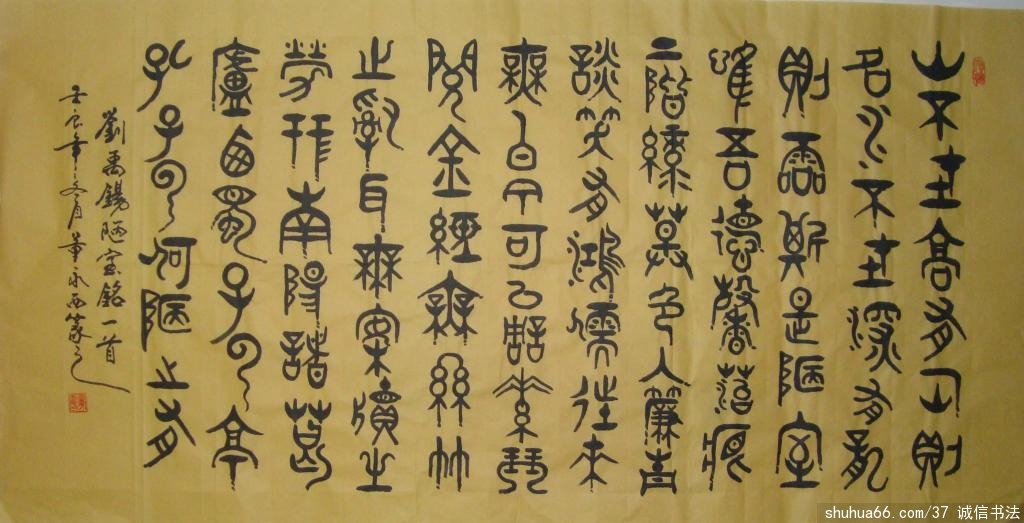 山不在高有仙則
名水不在深有龍
則靈斯是陋室
唯吾德馨苔痕
上階綠草色入簾青
談笑有鴻儒往來
無白丁可以調素琴
閱金經無絲竹
之亂耳無案牘之
勞形南陽諸葛
廬西蜀子雲亭
孔子云何陋之有
劉禹錫陋室銘一首
壬辰年冬月董永西篆之
shuhua66.com/37 诚信书法